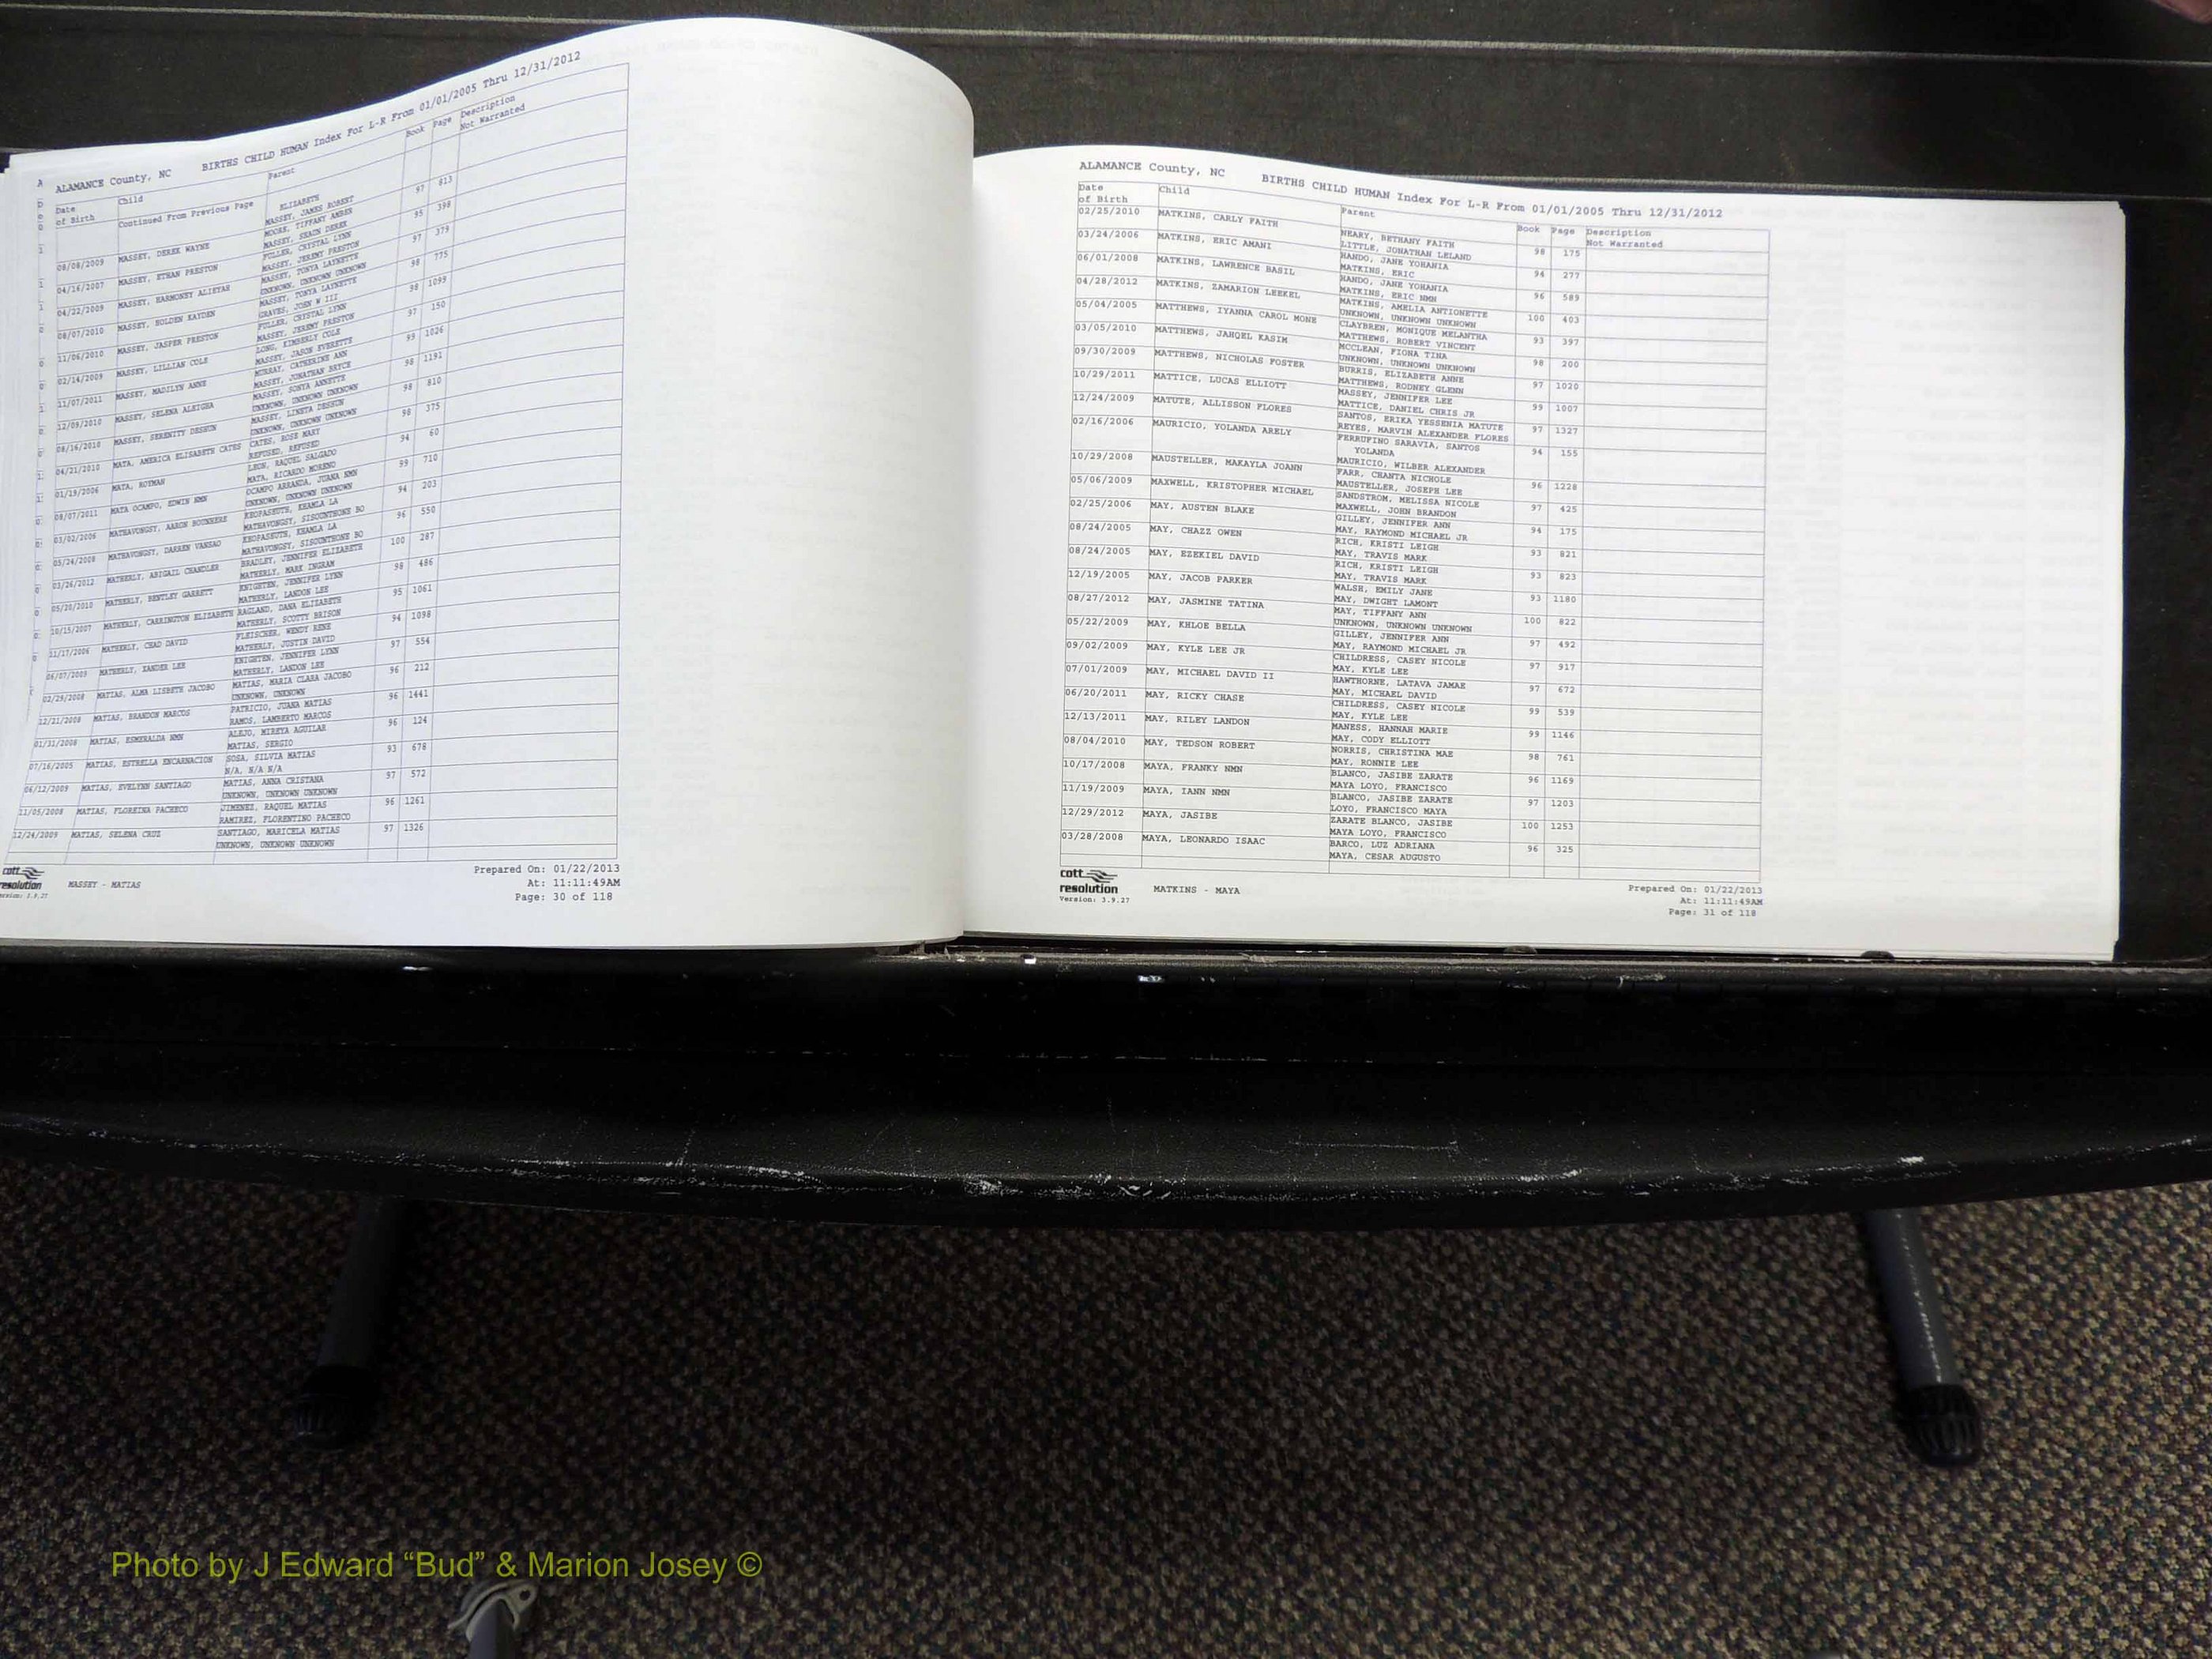 ALAMANCE County, NC BIRTHS CHILD HUMAN Index For L-R From 01/01/2005 Thru 12/31/2012
Date of Birth Child Parent Book Page Description Not Warranted
Continued From Previous Page ELIZABETH
MASSEY, JAMES ROBERT
08/08/2009 MASSEY, DEREK WAYNE MOORE, TIFFANY AMBER 97 813
MASSEY, SHAUN DEREK
04/16/2007 MASSEY, ETHAN PRESTON FULLER, CRYSTAL LYNN 95 398
MASSEY, JEREMY PRESTON
04/22/2009 MASSEY, HARMONEY ALIEYAH MASSEY, TONYA LAYNETTE 97 379
UNKNOWN, UNKNOWN UNKNOWN
08/07/2010 MASSEY, HOLDEN KAYDEN MASSEY, TONYA LAYNETTE 98 775
GRAVES, JOHN W III
11/06/2010 MASSEY, JASPER PRESTON FULLER, CRYSTAL LYNN 98 1099
MASSEY, JEREMY PRESTON
02/14/2009 MASSEY, LILLIAN COLE LONG, KIMBERLY COLE 97 150
MASSEY, JASON EVERETTE
11/07/2011 MASSEY, MADILYN ANNE MURRAY, CATHERINE ANN 99 1026
MASSEY, JONATHAN BRYCE
12/09/2010 MASSEY, SELENA ALEIGHA MASSEY, SONYA ANNETTE 98 1191
UNKNOWN, UNKNOWN UNKNOWN
08/16/2010 MASSEY, SERENITY DESHUN MASSEY, LINETA DESHUN 98 810
UNKNOWN, UNKNOWN UNKNOWN
04/21/2010 MATA, AMERICA ELISABETH CATES CATES, ROSE MARY 98 375
REFUSED, REFUSED
01/19/2006 MATA, ROYMAN LEON, RAQUEL SALGADO 94 60
MATA, RICARDO MORENO
08/07/2011 MATA OCAMPO, EDWIN NMN OCAMPO ARRANDA, JUANA NMN 99 710
UNKNOWN, UNKNOWN UNKNOWN
03/02/2006 MATHAVONGSY, AARON BOUNHERE KEOPASEUTH, KHAMLA LA 94 203
MATHAVONGSY, SISOUNTHONE BO
05/24/2008 MATHAVONGSY, DARREN VANSAO KEOPASEUTH, KHAMLA LA 96 550
MATHAVONGSY, SISOUNTHONE BO
03/26/2012 MATHERLY, ABIGAIL CHANDLER BRADLEY, JENNIFER ELIZABETH 100 287
MATHERLY, MARK INGRAM
05/20/2010 MATHERLY, BENTLEY GARRETT KNIGHTEN, JENNIFER LYNN 98 486
MATHERLY, LANDON LEE
10/15/2007 MATHERLY, CARRINGTON ELIZABETH RAGLAND, DANA ELIZABETH 95 1061
MATHERLY, SCOTTY BRISON
11/17/2006 MATHERLY, CHAD DAVID FLEISCHER, WENDY RENE 94 1098
MATHERLY, JUSTIN DAVID
06/07/2009 MATHERLY, XANDER LEE KNIGHTEN, JENNIFER LYNN 97 554
MATHERLY, LANDON LEE
02/29/2008 MATIAS, ALMA LISBETH JACOBO MATIAS, MARIA CLARA JACOBO 96 212
UNKNOWN, UNKNOWN
12/21/2008 MATIAS, BRANDON MARCOS PATRICIO, JUANA MATIAS 96 1441
RAMOS, LAMBERTO MARCOS
01/31/2008 MATIAS, ESMERALDA NMN ALEJO, MIREYA AGUILAR 96 124
MATIAS, SERGIO
07/16/2005 MATIAS, ESTRELLA ENCARNACION SOSA, SILVIA MATIAS 93 678
N/A, N/A N/A
06/12/2009 MATIAS, EVELYNN SANTIAGO MATIAS, ANNA CRISTANA 97 572
UNKNOWN, UNKNOWN UNKNOWN
11/05/2008 MATIAS, FLOREINA PACHECO JIMENEZ, RAQUEL MATIAS 96 1261
RAMIREZ, FLORENTINO PACHECO
12/24/2009 MATIAS, SELENA CRUZ SANTIAGO, MARICELA MATIAS 97 1326
UNKNOWN, UNKNOWN UNKNOWN
cott resolution
Version: 3.9.27
MASSEY - MATIAS
Prepared On: 01/22/2013
At: 11:11:49AM
Page: 30 of 118
ALAMANCE County, NC BIRTHS CHILD HUMAN Index For L-R From 01/01/2005 Thru 12/31/2012
Date of Birth Child Parent Book Page Description Not Warranted
02/25/2010 MATKINS, CARLY FAITH NEARY, BETHANY FAITH 98 175
LITTLE, JONATHAN LELAND
03/24/2006 MATKINS, ERIC AMANI HANDO, JANE YOHANIA 94 277
MATKINS, ERIC
06/01/2008 MATKINS, LAWRENCE BASIL HANDO, JANE YOHANIA 96 589
MATKINS, ERIC NMN
04/28/2012 MATKINS, ZAMARION LEEKEL MATKINS, AMELIA ANTIONETTE 100 403
UNKNOWN, UNKNOWN UNKNOWN
05/04/2005 MATTHEWS, IYANNA CAROL MONE CLAYBREN, MONIQUE MELANTHA 93 397
MATTHEWS, ROBERT VINCENT
03/05/2010 MATTHEWS, JAHQEL KASIM MCCLEAN, FIONA TINA 98 200
UNKNOWN, UNKNOWN UNKNOWN
09/30/2009 MATTHEWS, NICHOLAS FOSTER BURRIS, ELIZABETH ANNE 97 1020
MATTHEWS, RODNEY GLENN
10/29/2011 MATTICE, LUCAS ELLIOTT MASSEY, JENNIFER LEE 99 1007
MATTICE, DANIEL CHRIS JR
12/24/2009 MATUTE, ALLISSON FLORES SANTOS, ERIKA YESSENIA MATUTE 97 1327
REYES, MARVIN ALEXANDER FLORES
02/16/2006 MAURICIO, YOLANDA ARELY FERRUFINO SARAVIA, SANTOS 94 155
YOLANDA
MAURICIO, WILBER ALEXANDER
10/29/2008 MAUSTELLER, MAKAYLA JOANN FARR, CHANTA NICHOLE 96 1228
MAUSTELLER, JOSEPH LEE
05/06/2009 MAXWELL, KRISTOPHER MICHAEL SANDSTROM, MELISSA NICOLE 97 425
MAXWELL, JOHN BRANDON
02/25/2006 MAY, AUSTEN BLAKE GILLEY, JENNIFER ANN 94 175
MAY, RAYMOND MICHAEL JR
08/24/2005 MAY, CHAZZ OWEN RICH, KRISTI LEIGH 93 821
MAY, TRAVIS MARK
08/24/2005 MAY, EZEKIEL DAVID RICH, KRISTI LEIGH 93 823
MAY, TRAVIS MARK
12/19/2005 MAY, JACOB PARKER WALSH, EMILY JANE 93 1180
MAY, DWIGHT LAMONT
08/27/2012 MAY, JASMINE TATINA MAY, TIFFANY ANN 100 822
UNKNOWN, UNKNOWN UNKNOWN
05/22/2009 MAY, KHLOE BELLA GILLEY, JENNIFER ANN 97 492
MAY, RAYMOND MICHAEL JR
09/02/2009 MAY, KYLE LEE JR CHILDRESS, CASEY NICOLE 97 917
MAY, KYLE LEE
07/01/2009 MAY, MICHAEL DAVID II HAWTHORNE, LATAVA JAMAE 97 672
MAY, MICHAEL DAVID
06/20/2011 MAY, RICKY CHASE CHILDRESS, CASEY NICOLE 99 539
MAY, KYLE LEE
12/13/2011 MAY, RILEY LANDON MANESS, HANNAH MARIE 99 1146
MAY, CODY ELLIOTT
08/04/2010 MAY, TEDSON ROBERT NORRIS, CHRISTINA MAE 98 761
MAY, RONNIE LEE
10/17/2008 MAYA, FRANKY NMN BLANCO, JASIBE ZARATE 96 1169
MAYA LOYO, FRANCISCO
11/19/2009 MAYA, IANN NMN BLANCO, JASIBE ZARATE 97 1203
LOYO, FRANCISCO MAYA
12/29/2012 MAYA, JASIBE ZARATE BLANCO, JASIBE 100 1253
MAYA LOYO, FRANCISCO
03/28/2008 MAYA, LEONARDO ISAAC BARCO, LUZ ADRIANA 96 325
MAYA, CESAR AUGUSTO
cott resolution
Version: 3.9.27
MATKINS - MAYA
Prepared On: 01/22/2013
At: 11:11:49AM
Page: 31 of 118
Photo by J Edward “Bud” & Marion Josey ©